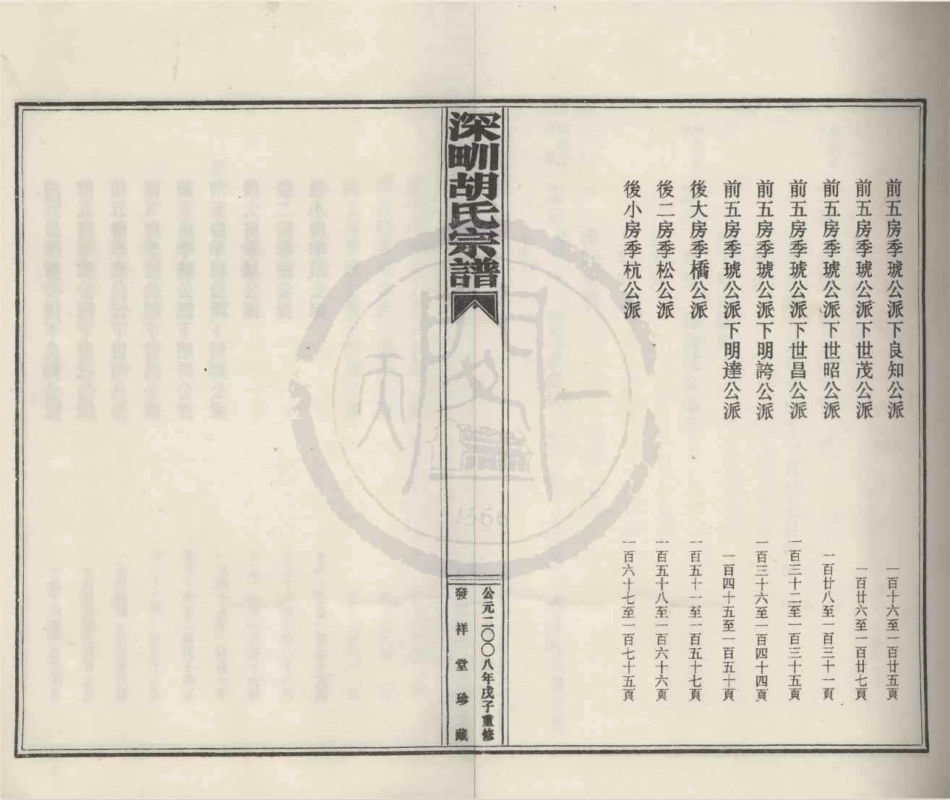 前五房季琥公派下良知公派 一百十六至一百廿五頁
前五房季琥公派下世茂公派 一百廿六至一百廿七頁
前五房季琥公派下世昭公派 一百廿八至一百三十一頁
前五房季琥公派下世昌公派 一百三十二至一百三十五頁
前五房季琥公派下明誇公派 一百三十六至一百四十四頁
前五房季琥公派下明達公派 一百四十五至一百五十頁
後大房季橋公派 一百五十一至一百五十七頁
後二房季松公派 一百五十八至一百六十六頁
後小房季杭公派 一百六十七至一百七十五頁
深甽胡氏宗譜
公元二〇〇八年戊子重修
發祥堂珍藏
天一閣
1566